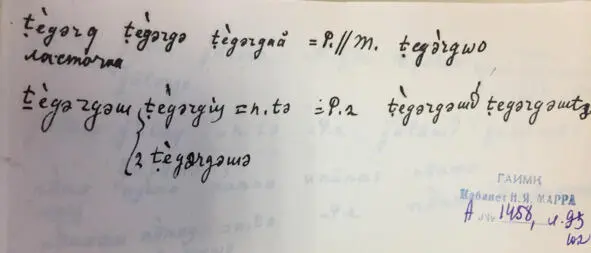 ṭègərg ṭègərgə ṭègərgnå = P. // m. ṭegə̀rgwo
ласточка
ṭègərgəm ṭègərgiy = n. tə = P. 2 ṭègərgəmớ ṭegərgəmtə
2 ṭègərgəmə
ГАИМК
Кабинет Н.Я. МАРРА
А №1458, л. 95